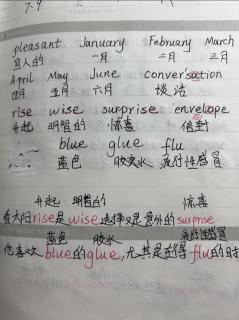 7.9
pleasant January February March
宜人的 一月 二月 三月
April May June conversation
四月 五月 六月 谈话
rise wise surprise envelope
升起 明智的 惊喜 信封
blue glue flu
蓝色 胶水 流行性感冒
升起 明智的 惊喜
看太阳rise是wise选择又是意外的surprise
蓝色 胶水 流行性感冒
他喜欢blue的glue,尤其是在得flu的时